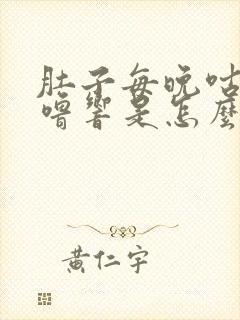 肚子每晚咕
嚕響是怎麼
黃仁宇